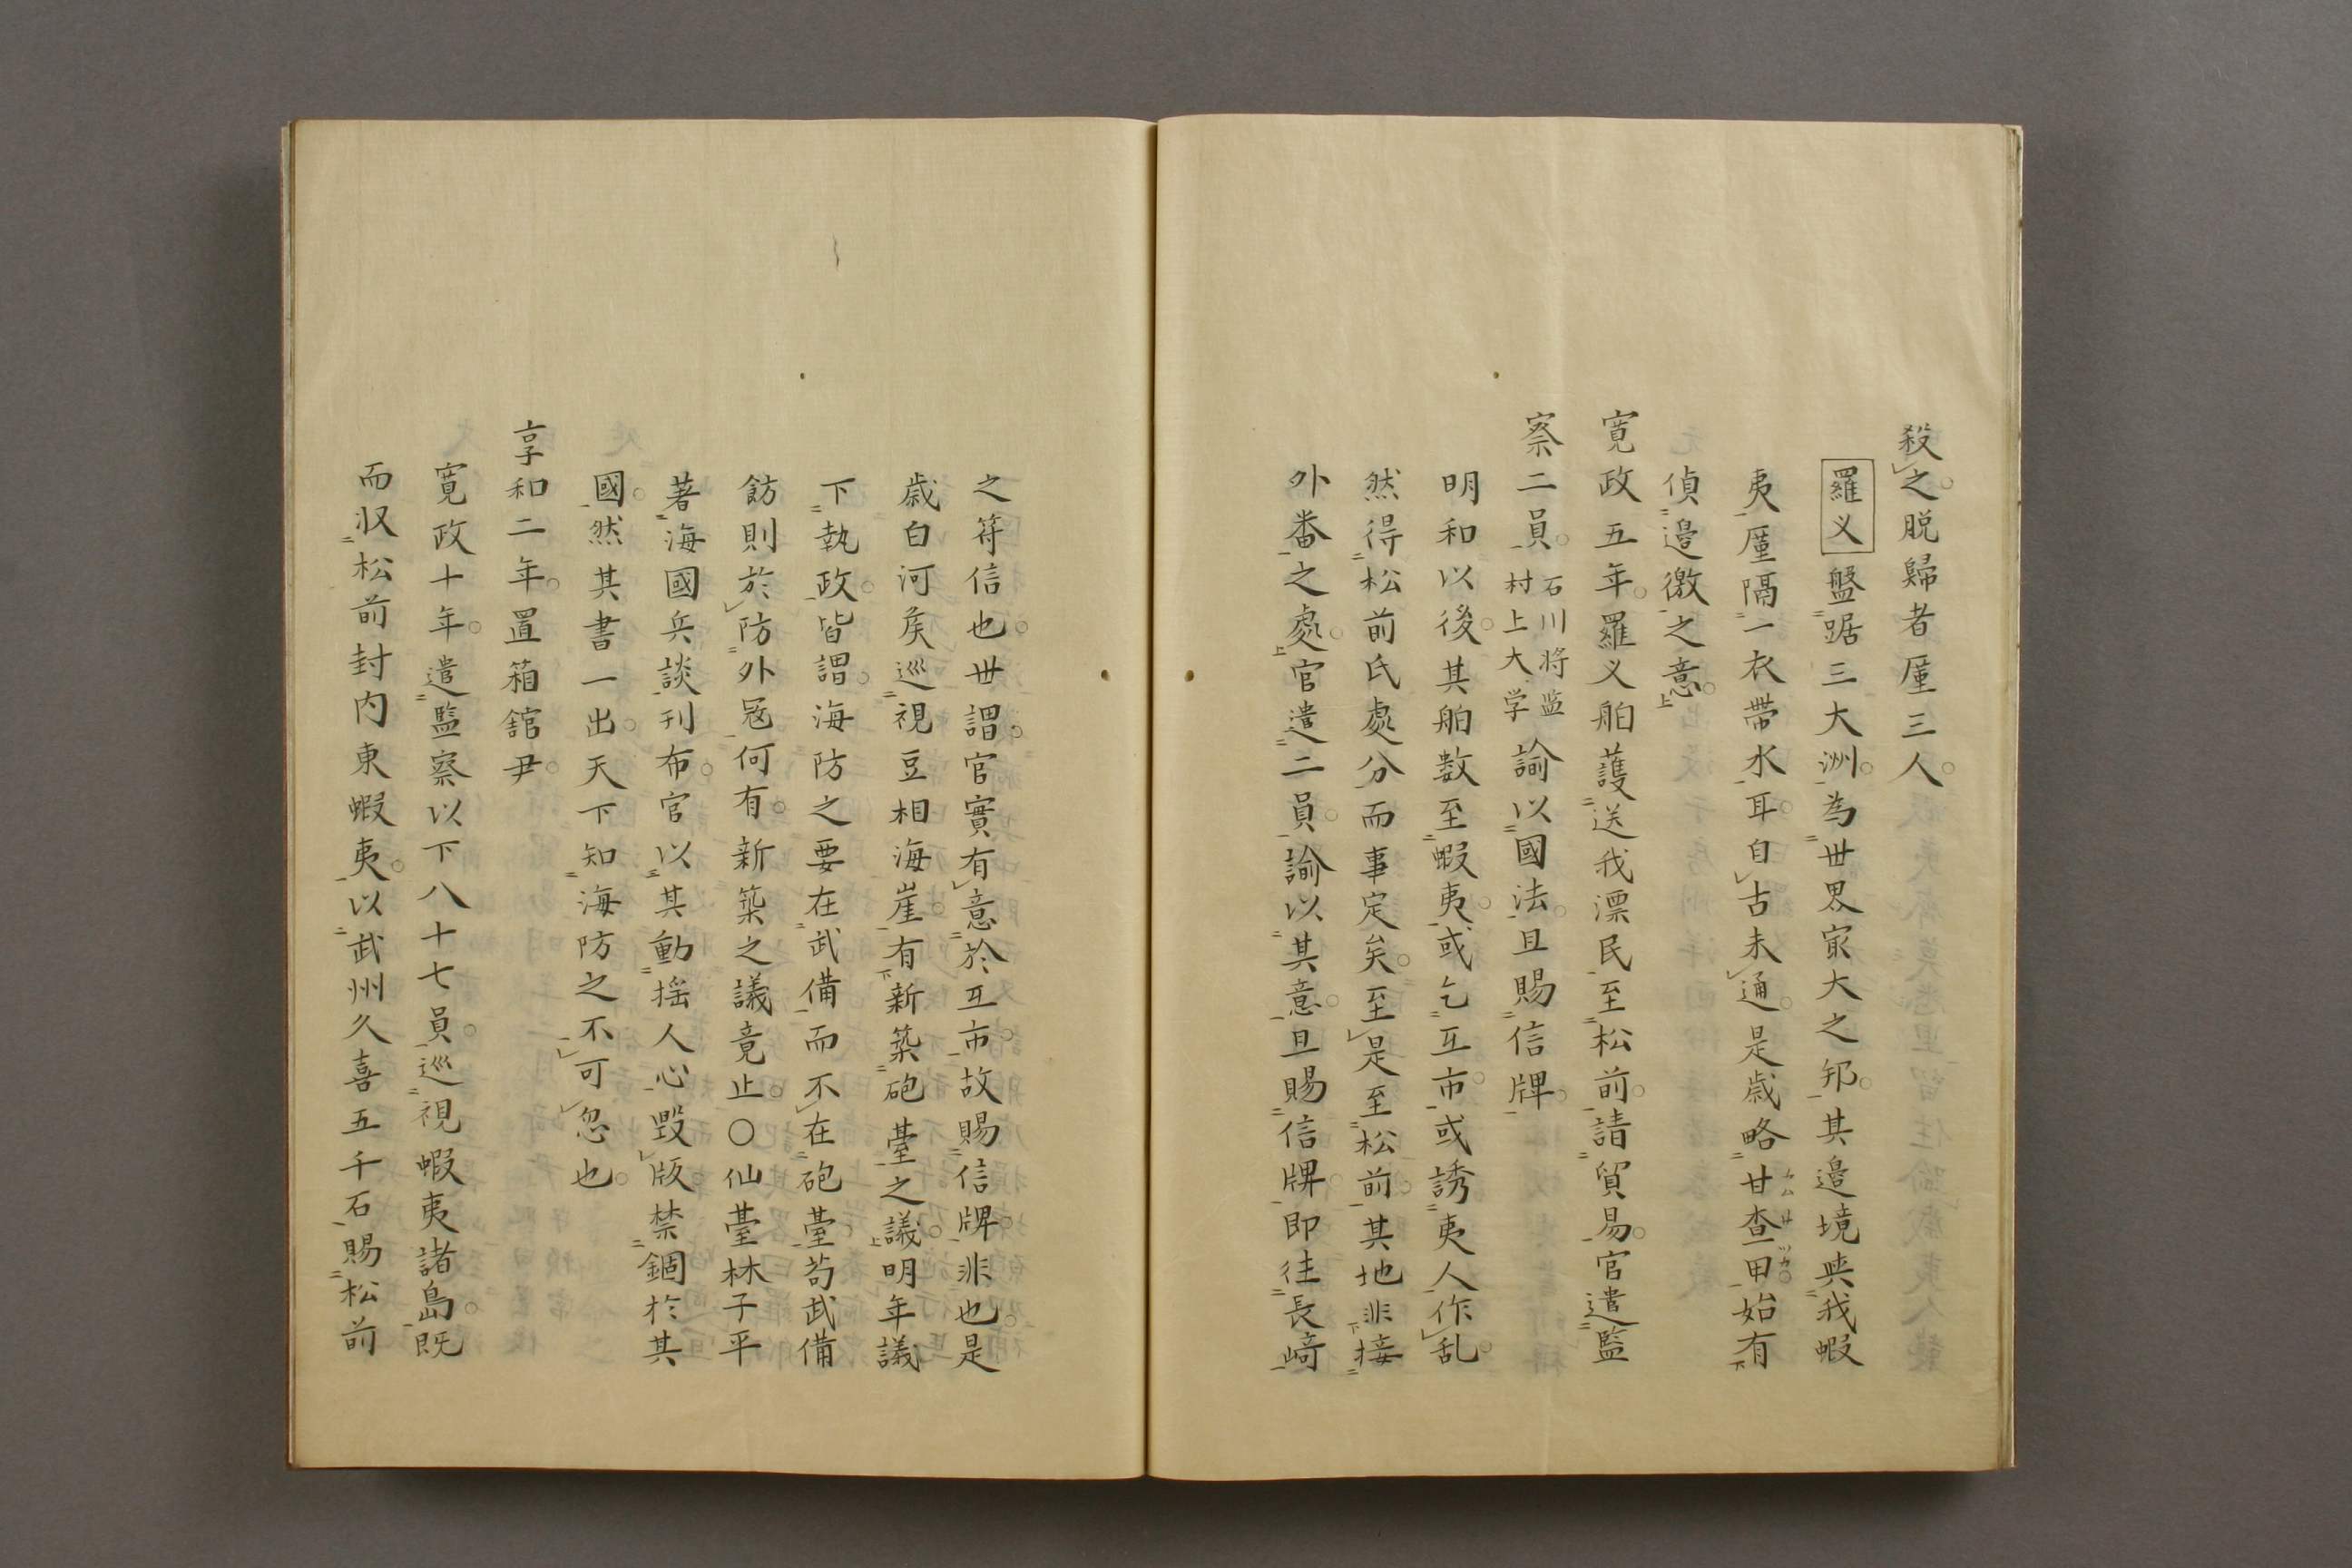 殺之脱歸者厪三人
羅义盤踞三大洲為丗界㝡大之邦其邉境與我蝦
夷厪隔一衣帶水耳自古未通是歳略甘査甲始有
偵邉徼之意
寛政五年羅义舶護送我漂民至松前請貿易官遣監
察二員石川将监村上大学諭以國法且賜信牌
明和以後其舶数至蝦夷或乞互市或誘夷人作乱
然得松前氏處分而事定矣至是至松前其地非接
外番之處官遣二員諭以其意且賜信牌即徃長﨑
之符信也丗謂官實有意於互市故賜信牌非也是
歳白河矦巡視豆相海崖有新築砲䑓之議明年議
下執政皆謂海防之要在武備而不在砲䑓苟武備
飭則於防外冦何有新築之議竟止〇仙䑓林子平
著海國兵談刊布官以其動揺人心毀版禁錮於其
國然其書一出天下知海防之不可忽也
享和二年置箱舘尹
寛政十年遣監察以下八十七員巡視蝦夷諸島既
而収松前封内東蝦夷以武州久喜五千石賜松前